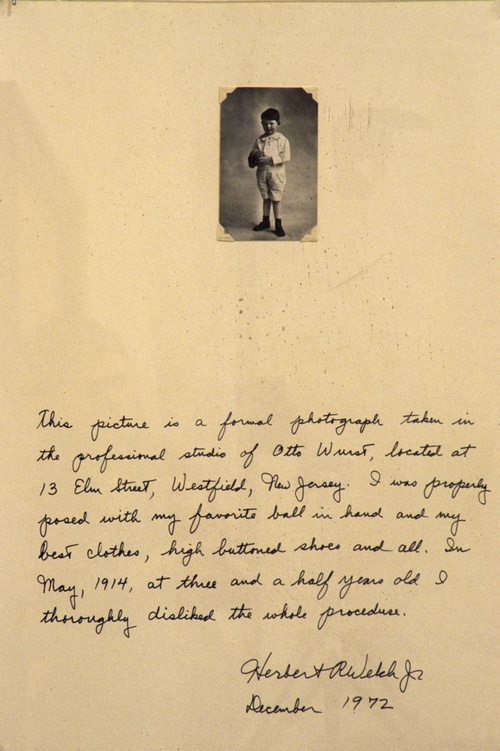 This picture is a formal photograph taken in
the professional studio of Otto Wurst, located at
13 Elm Street, Westfield, New Jersey. I was properly
posed with my favorite ball in hand and my
best clothes, high buttoned shoes and all. In
May, 1914, at three and a half years old I
thoroughly disliked the whole procedure.
Herbert R Welch Jr
December 1972